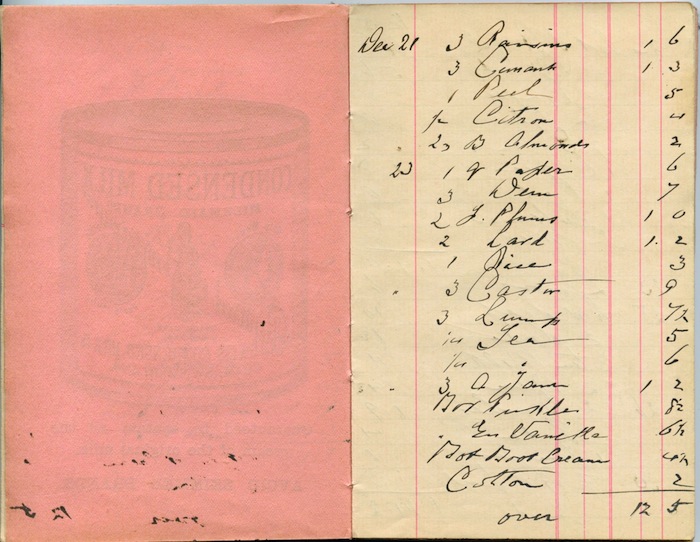 Dec 21 3 Raisins 1 6
3 Currants 1 3
1 Peel 5
Citron 4
23 B Almonds 2
23 1 q Paper 6
3 Dem 7
2 F. Plums 1 0
2 Lard 1. 2
1 Rice 3
" 3 Castor 9
3 Lump 7½
¼ Tea 5
¼ " 6
" 3 A Jam 1 2
Bot Pickles 8½
" Es Vanilla 6½
Bot Boot Cream 4½
Cotton 2
over 12 5